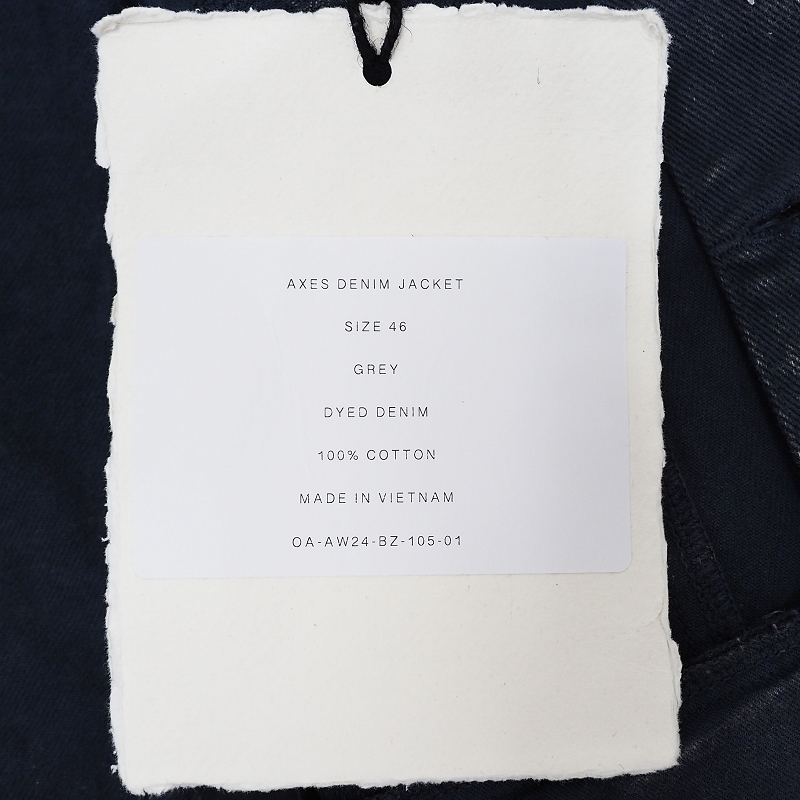 AXES DENIM JACKET
SIZE 46
GREY
DYED DENIM
100% COTTON
MADE IN VIETNAM
OA-AW24-BZ-105-01